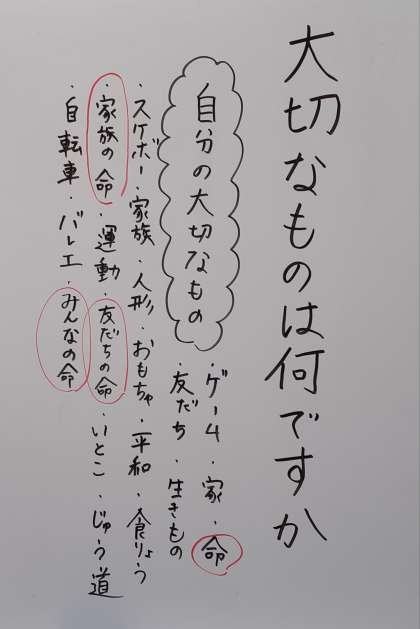 大切なものは何ですか
自分の大切なもの
・ゲーム・家・命
・友だち・生きもの
・スケボー・家族・人形・おもちゃ・平和・食りょう
・家族の命・運動・友だちの命・いとこ・じゅう道
・自転車・バレエ・みんなの命